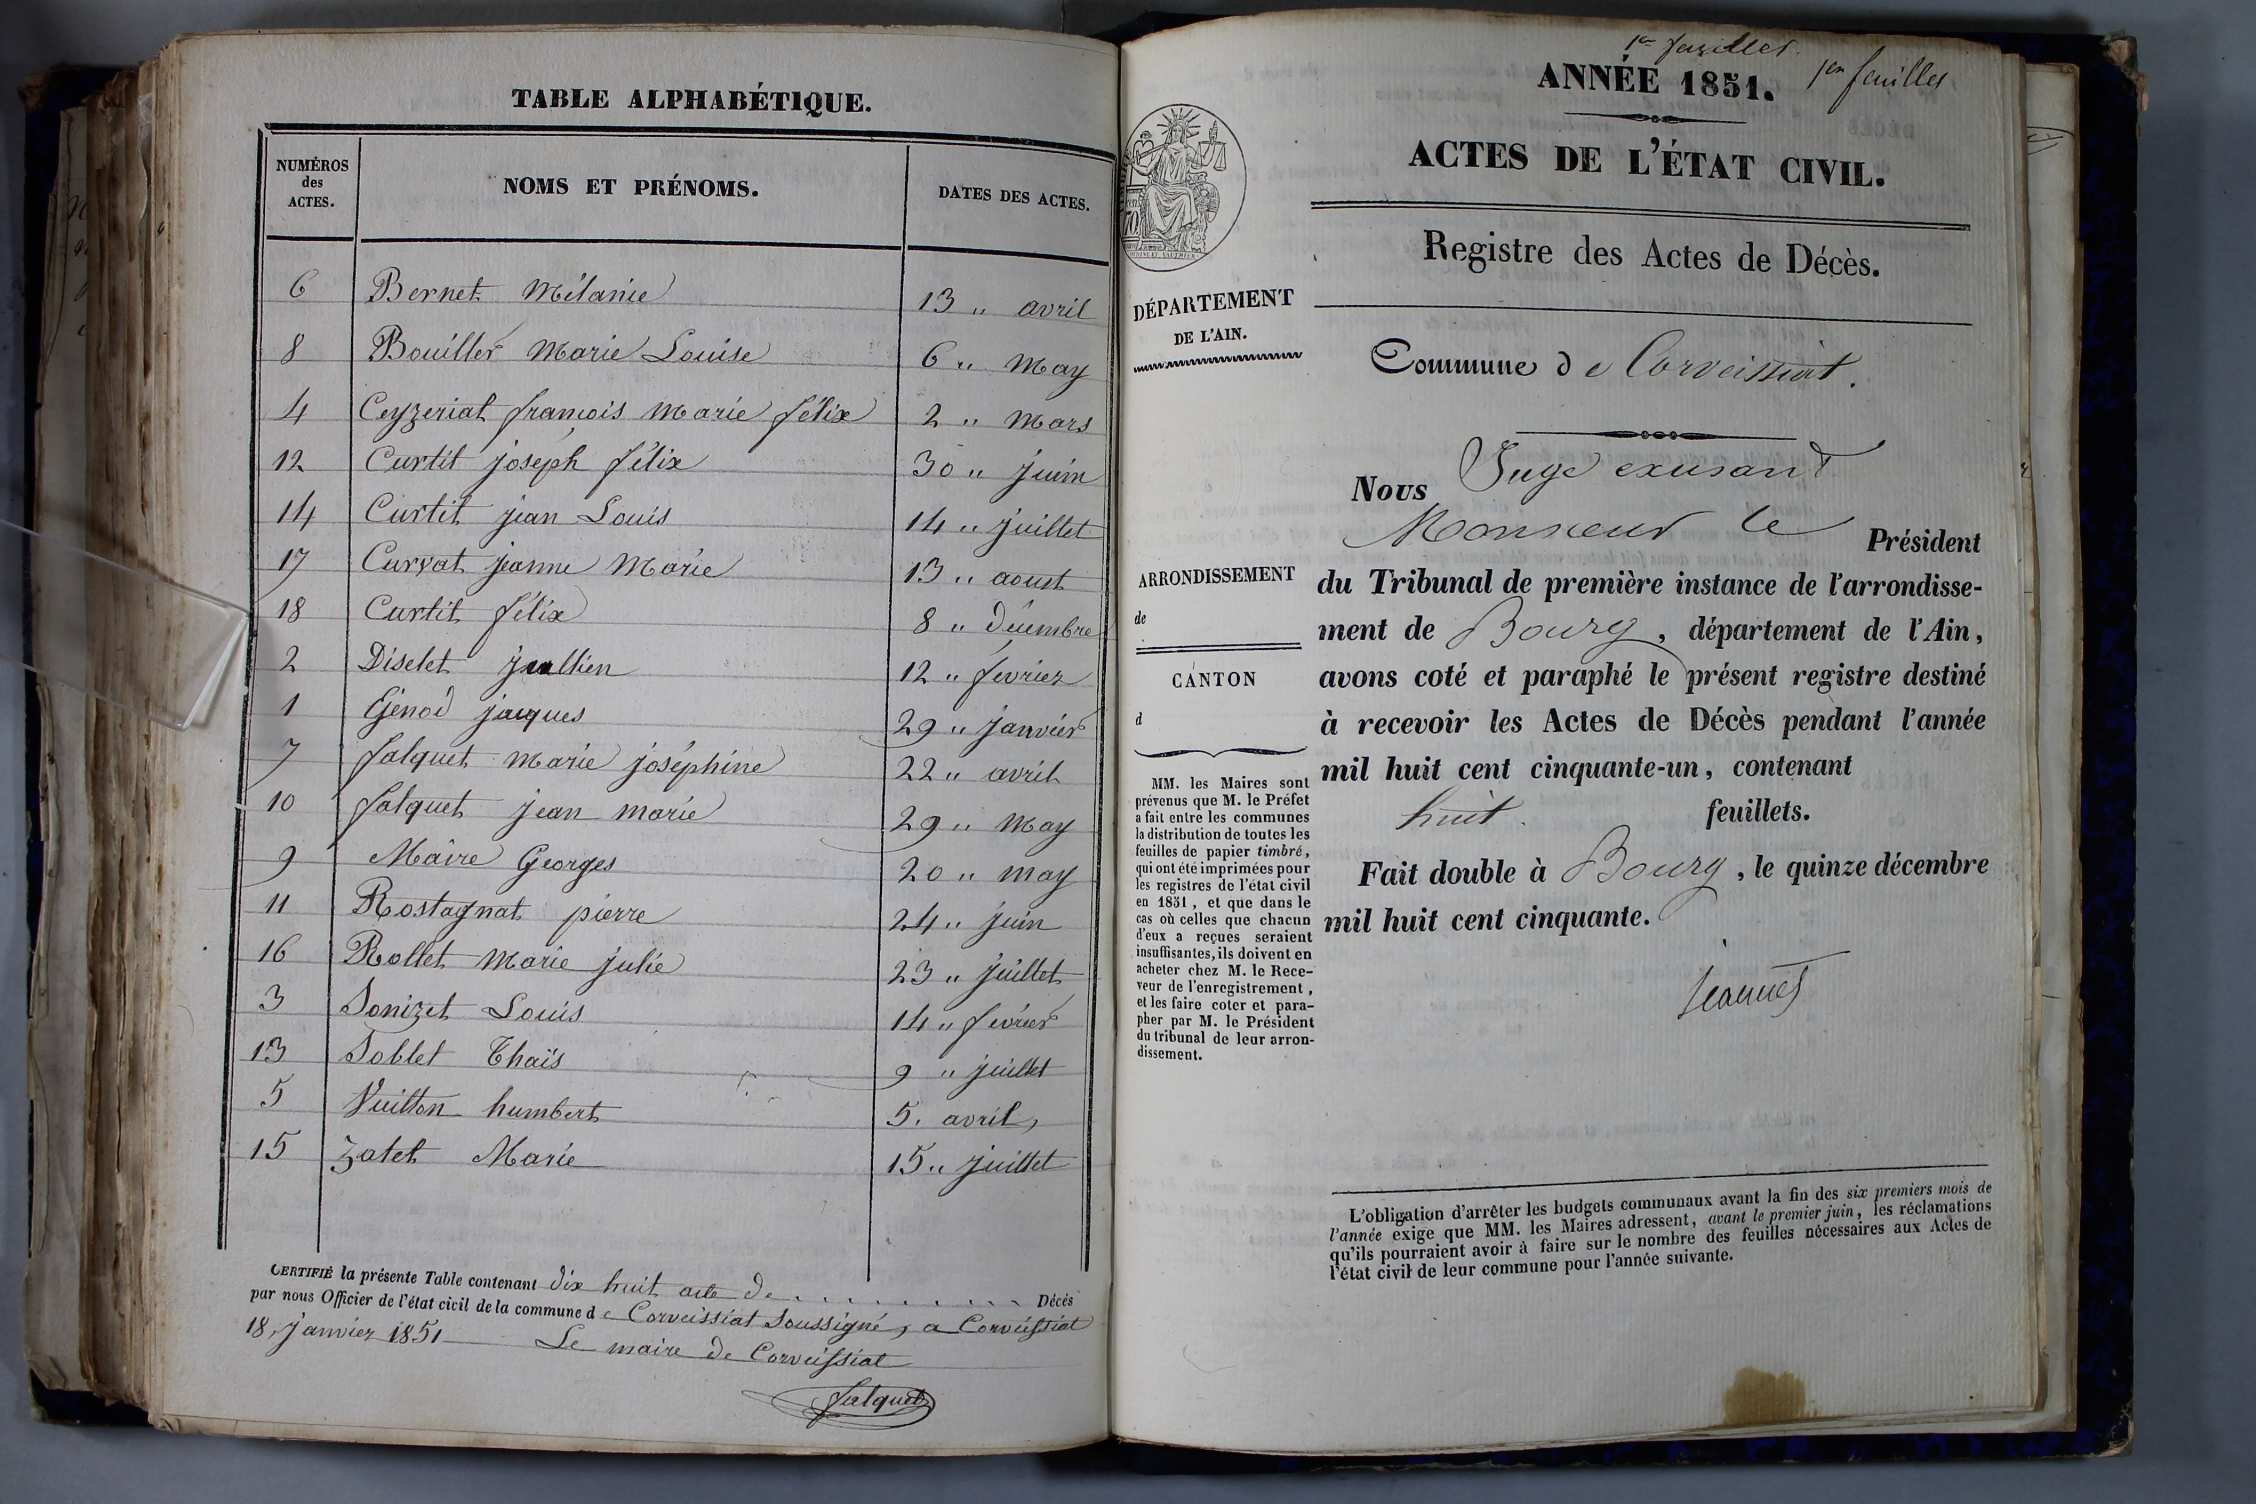 TABLE ALPHABÉTIQUE.
NUMÉROS des ACTES.
NOMS ET PRÉNOMS.
DATES DES ACTES.
6 Bernet Mélanie 13 " avril
8 Bouiller Marie Louise 6 " May
4 Ceyzeriat françois Marie félix 2 " Mars
12 Curtil joséph félix 30 " juin
14 Curtil jean Louis 14 " juillet
17 Curvat jeanne Marie 13 " aoust
18 Curtil félix 8 " décembre
2 Diselet jullien 12 " févriez
1 Génod jacques 29 " janvier
7 falquet marie joséphine 22 " avril
10 falquet jean marie 29 " May
9 Maire Georges 20 " may
11 Rostagnat pierre 24 " juin
16 Rollet Marie julie 23 " juillet
3 Sonizet Louis 14 " février
13 Soblet Thaïs 9 " juillet
5 Vuitton humbert 5. avril,
15 Zatet Marie 15 " juillet
CERTIFIÉ la présente Table contenant dix huit acte de Décès
par nous Officier de l'état cicil de la commune de Corveissiat Soussigné, a Corveissiat
18, janviez 1851 Le maire de Corveissiat
falquet
1er feuillet.
1er feuillet
ANNÉE 1851.
ACTES DE L'ÉTAT CIVIL.
Registre des Actes de Décès.
DÉPARTEMENT
DE L'AIN.
Commune de Corveissiat.
Nous Juge exusant
Monsieur le Président
ARRONDISSEMENT
de
CANTON
d
du Tribunal de première instance de l'arrondisse-
ment de Bourg, département de l'Ain,
avons coté et paraphé le présent registre destiné
à recevoir les Actes de Décès pendant l'année
mil huit cent cinquante-un, contenant
huit. feuillets.
Fait double à Bourg, le quinze décembre
mil huit cent cinquante.
MM. les Maires sont
prévenus que M. le Préfet
a fait entre les communes
la distribution de toutes les
feuilles de papier timbré,
qui ont été imprimées pour
les registres de l'état civil
en 1851, et que dans le
cas où celles que chacun
d'eux a reçues seraient
insuffisantes, ils doivent en
acheter chez M. le Rece-
veur de l'enregistrement,
et les faire coter et para-
pher par M. le Président
du tribunal de leur arron-
dissement.
L'obligation d'arrêter les budgets communaux avant la fin des six premiers mois de
l'année exige que MM. les Maires adressent, avant le premier juin, les réclamations
qu'ils pourraient avoir à faire sur le nombre des feuilles nécessaires aux Actes de
l'état civil de leur commune pour l'année suivante.